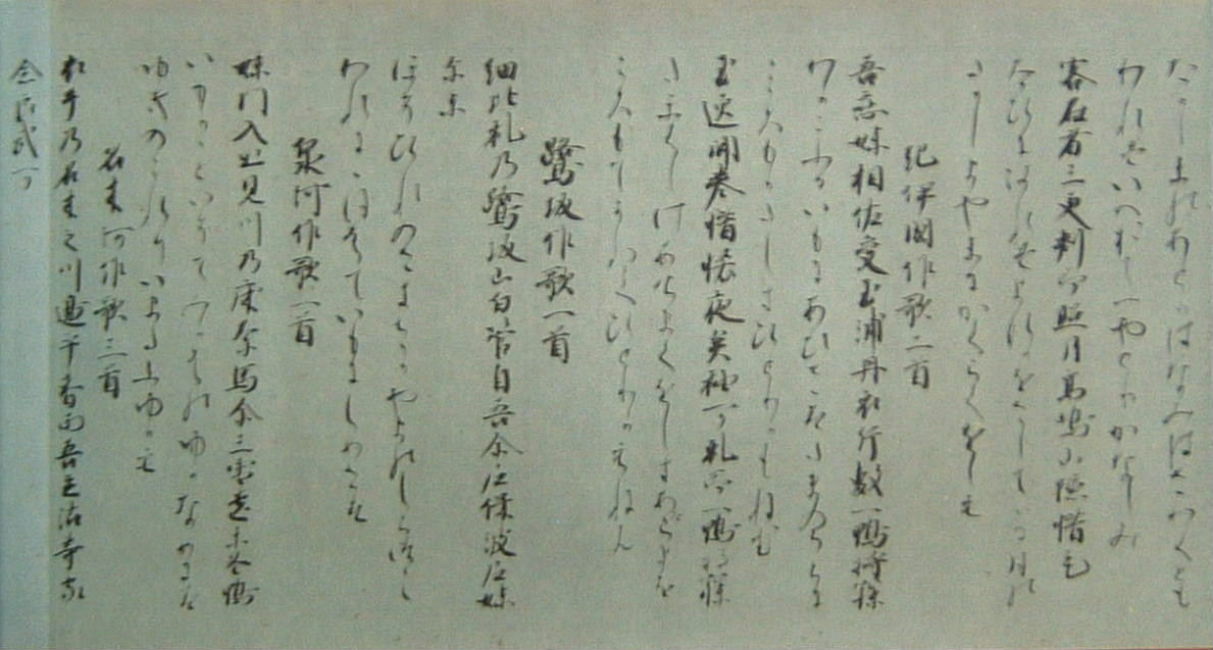 たかしまのあとかはなみはさわくとも
われはいへおもふやとりかなしみ
客在者三更判而照月高嶋山隠惜毛
たひなれはよなかをさしててる月の
たかしまやまにかくらくをしも
紀伊國作歌二首
吾恋妹相佐受玉浦丹衣片敷一鴨将寐
わかこふるいもにあひさすたまのうらに
ころもかたしきひとりかもねむ
玉匣開巻惜夜矣袖可礼而一鴨将寐
たまくしけあけまくをしきあたらよを
ころもてかれてひとりかもねん
鷺坂作歌一首
細比礼乃鷺坂山白管自吾尓尼保波尼妹
尓示
ほそひれのさきさかやまのしらつつし
われににほはていもにしめさむ
泉河作歌一首
妹門入出見川乃床奈馬尓三雪遣未冬鴨
いもかかといりいつみかはのゆかなめに
みゆきのこれりいまたふゆかも
名木河作歌三首
衣手乃名木之川邊乎春雨吾立沾等家
念良武可